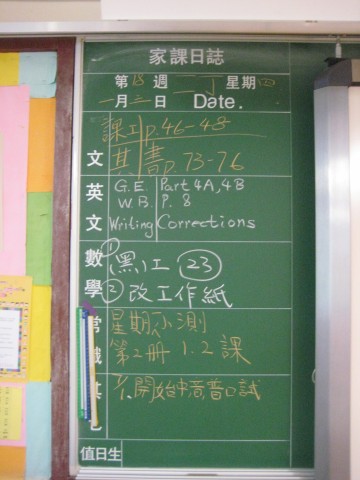 家課日誌
第18週 二丁 星期四
一月三日 Date.
課工 p.46-48
文 其 書 p.73-76
英 G.E. Part 4A,4B
W.B. P.8
文 Writing Corrections
數 ① (黑)工 ㉓
學 ② 改工作紙
常 星期 小測
識 第2冊 1.2課
其 開始中 音口試
值日生